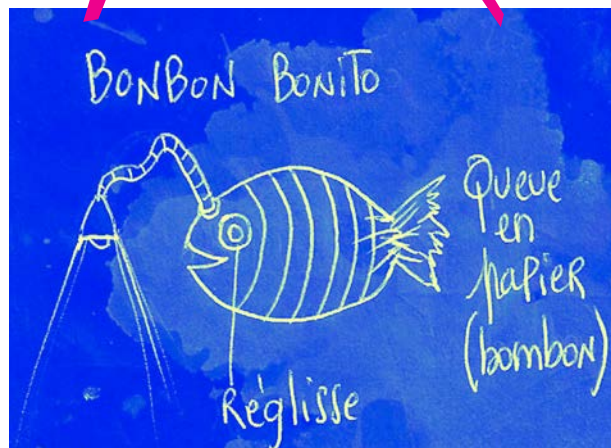 BONBON BONITO
Queue
en
papier
(bombon)
Réglisse